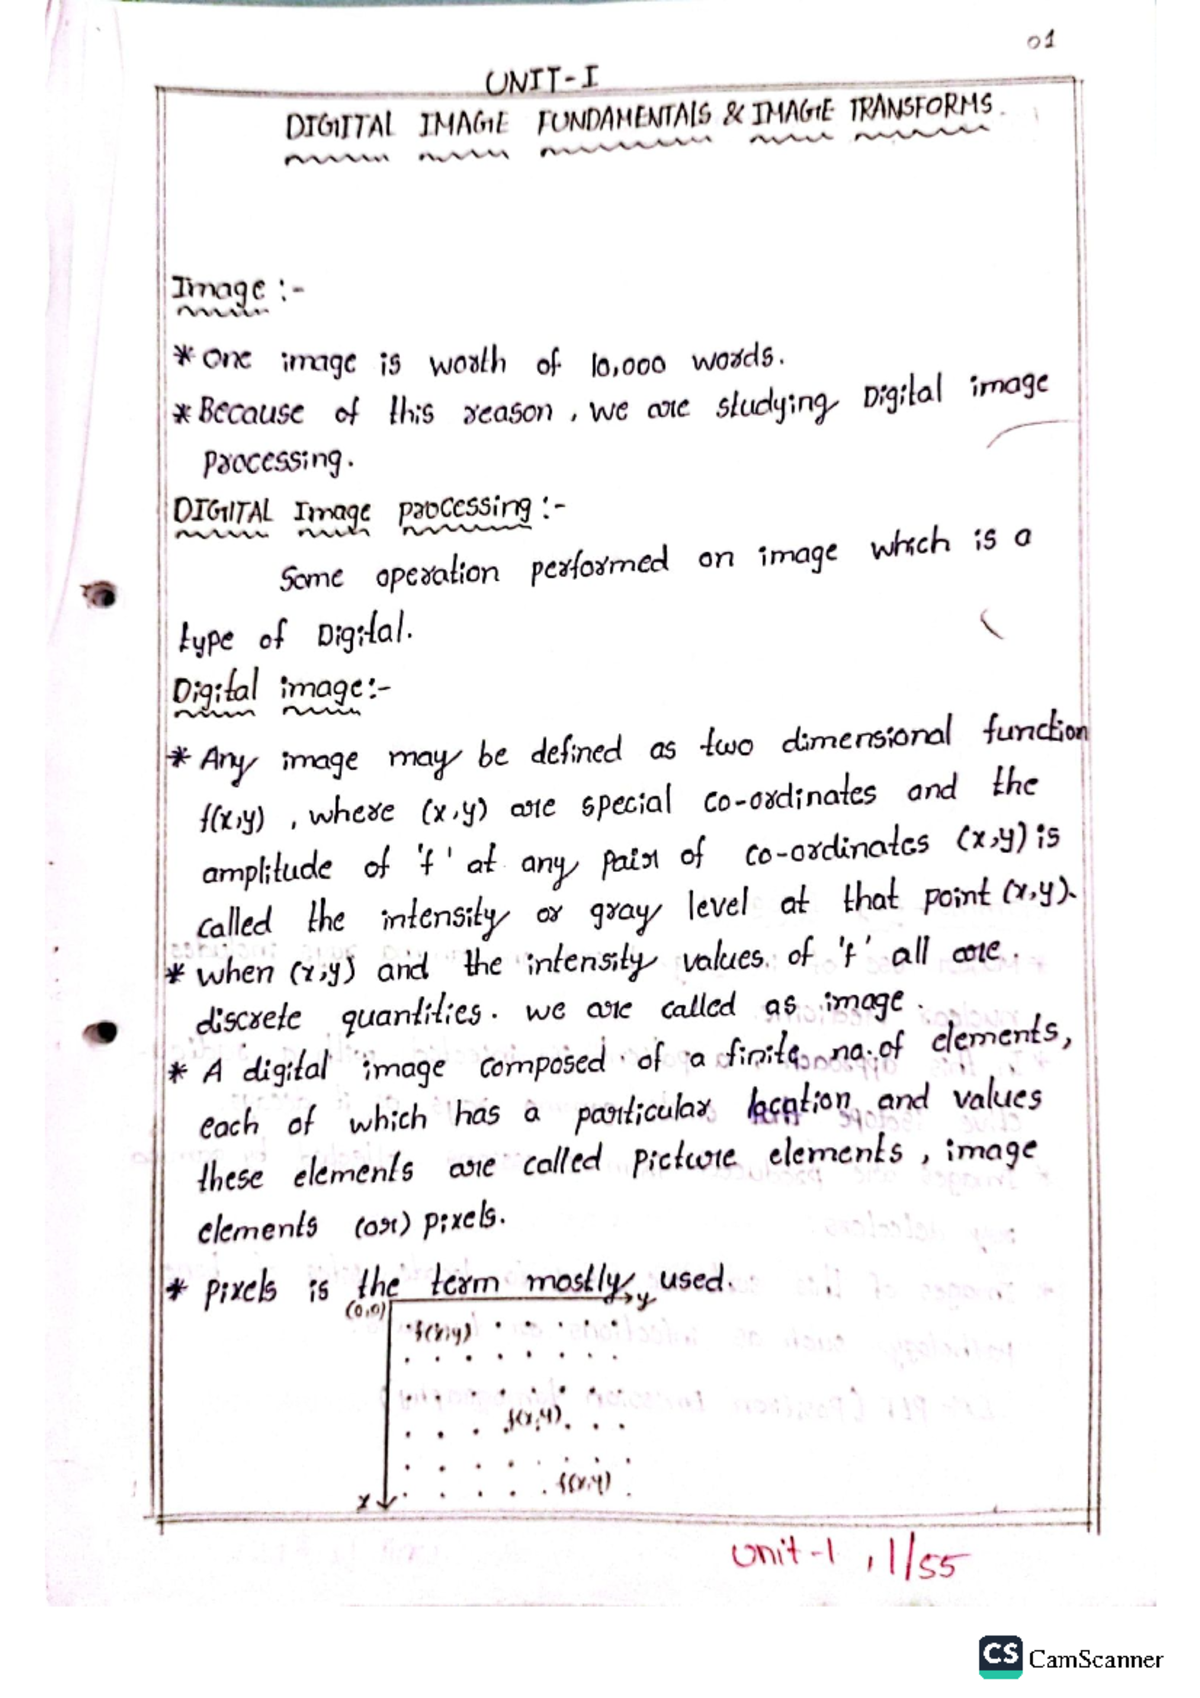 01
UNIT-I
DIGITAL IMAGE FUNDAMENTALS & IMAGE TRANSFORMS.
Image :-
* One image is worth of 10,000 words.
* Because of this reason, we are studying Digital image
processing.
DIGITAL Image processing :-
Some operation performed on image which is a
type of Digital.
Digital image:-
* Any image may be defined as two dimensional function
f(x,y), where (x,y) are special co-ordinates and the
amplitude of 'f' at any pair of co-ordinates (x,y) is
called the intensity or gray level at that point (x,y).
* when (x,y) and the intensity values of 'f' all are
discrete quantities. we are called as image.
* A digital image composed of a finite no. of elements,
each of which has a particular location and values
these elements are called picture elements, image
elements (or) pixels.
* pixels is the term mostly used.
(0,0)
y
f(x,y)
f(x,y)
f(x,y)
x
unit-1, 1/55
CS CamScanner